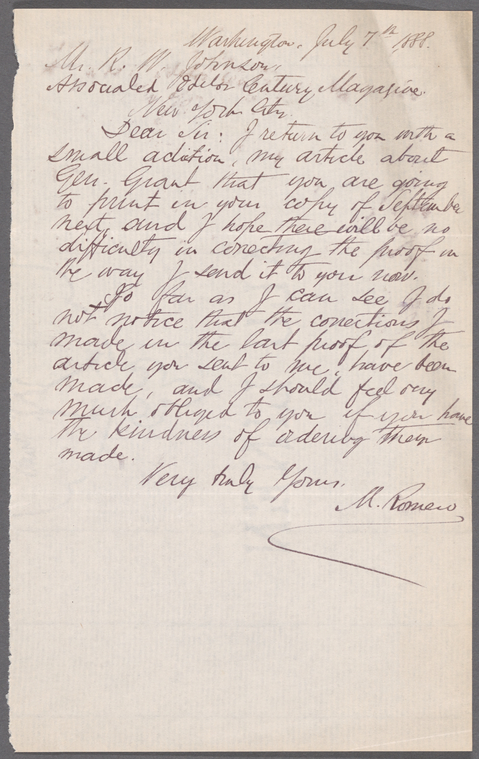 Washington, July 7th 1888.
Mr. R. W. Johnson,
Associated Editor Century Magazine.
New York City.
Dear Sir: I return to you with a
small adition, my article about
Gen. Grant that you are going
to print in your copy of September
next, and I hope there will be no
difficulty in correcting the proof in
the way I send it to you now.
So far as I can see I do
not notice that the corrections I
made in the last proof of the
article you sent to me, have been
made, and I should feel very
much obliged to you if you have
the kindness of ordering them
made.
Very truly Yours,
M. Romero